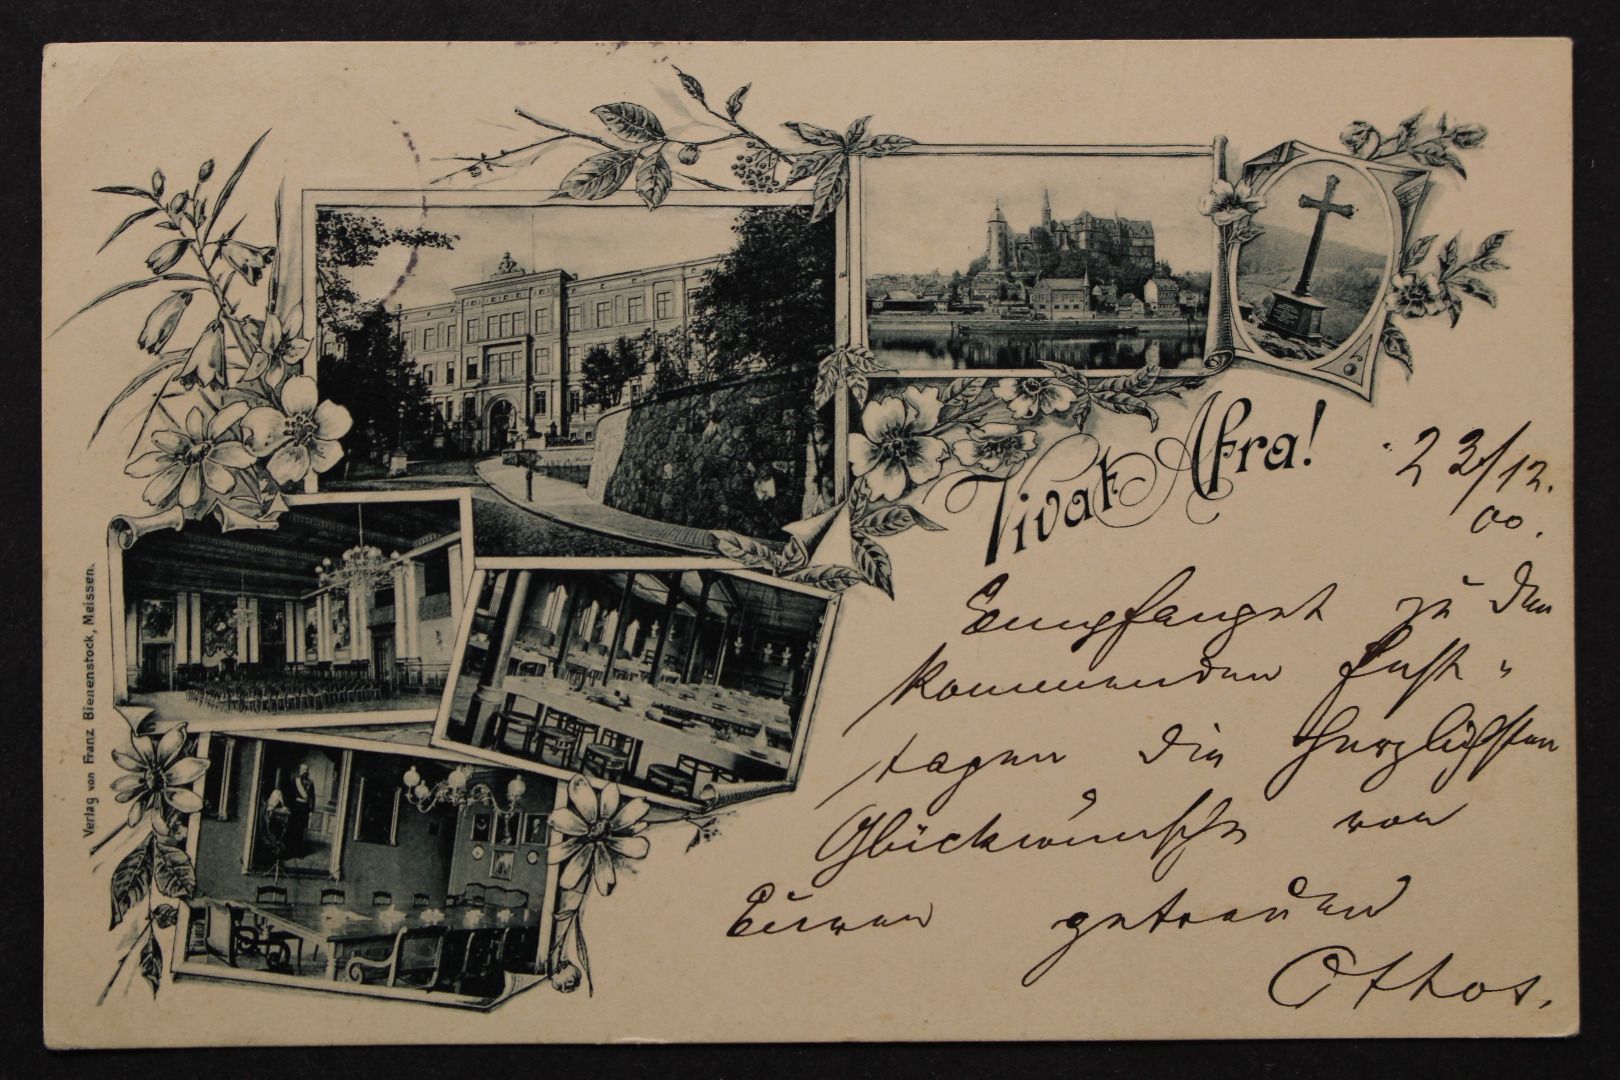 Vivat Afra!
23/12.
00.
Empfanget zu den
kommenden Fest-
tagen die herzlichsten
Glückwünsche von
Euren getreuen
Verlag von Franz Bienenstock, Meissen.